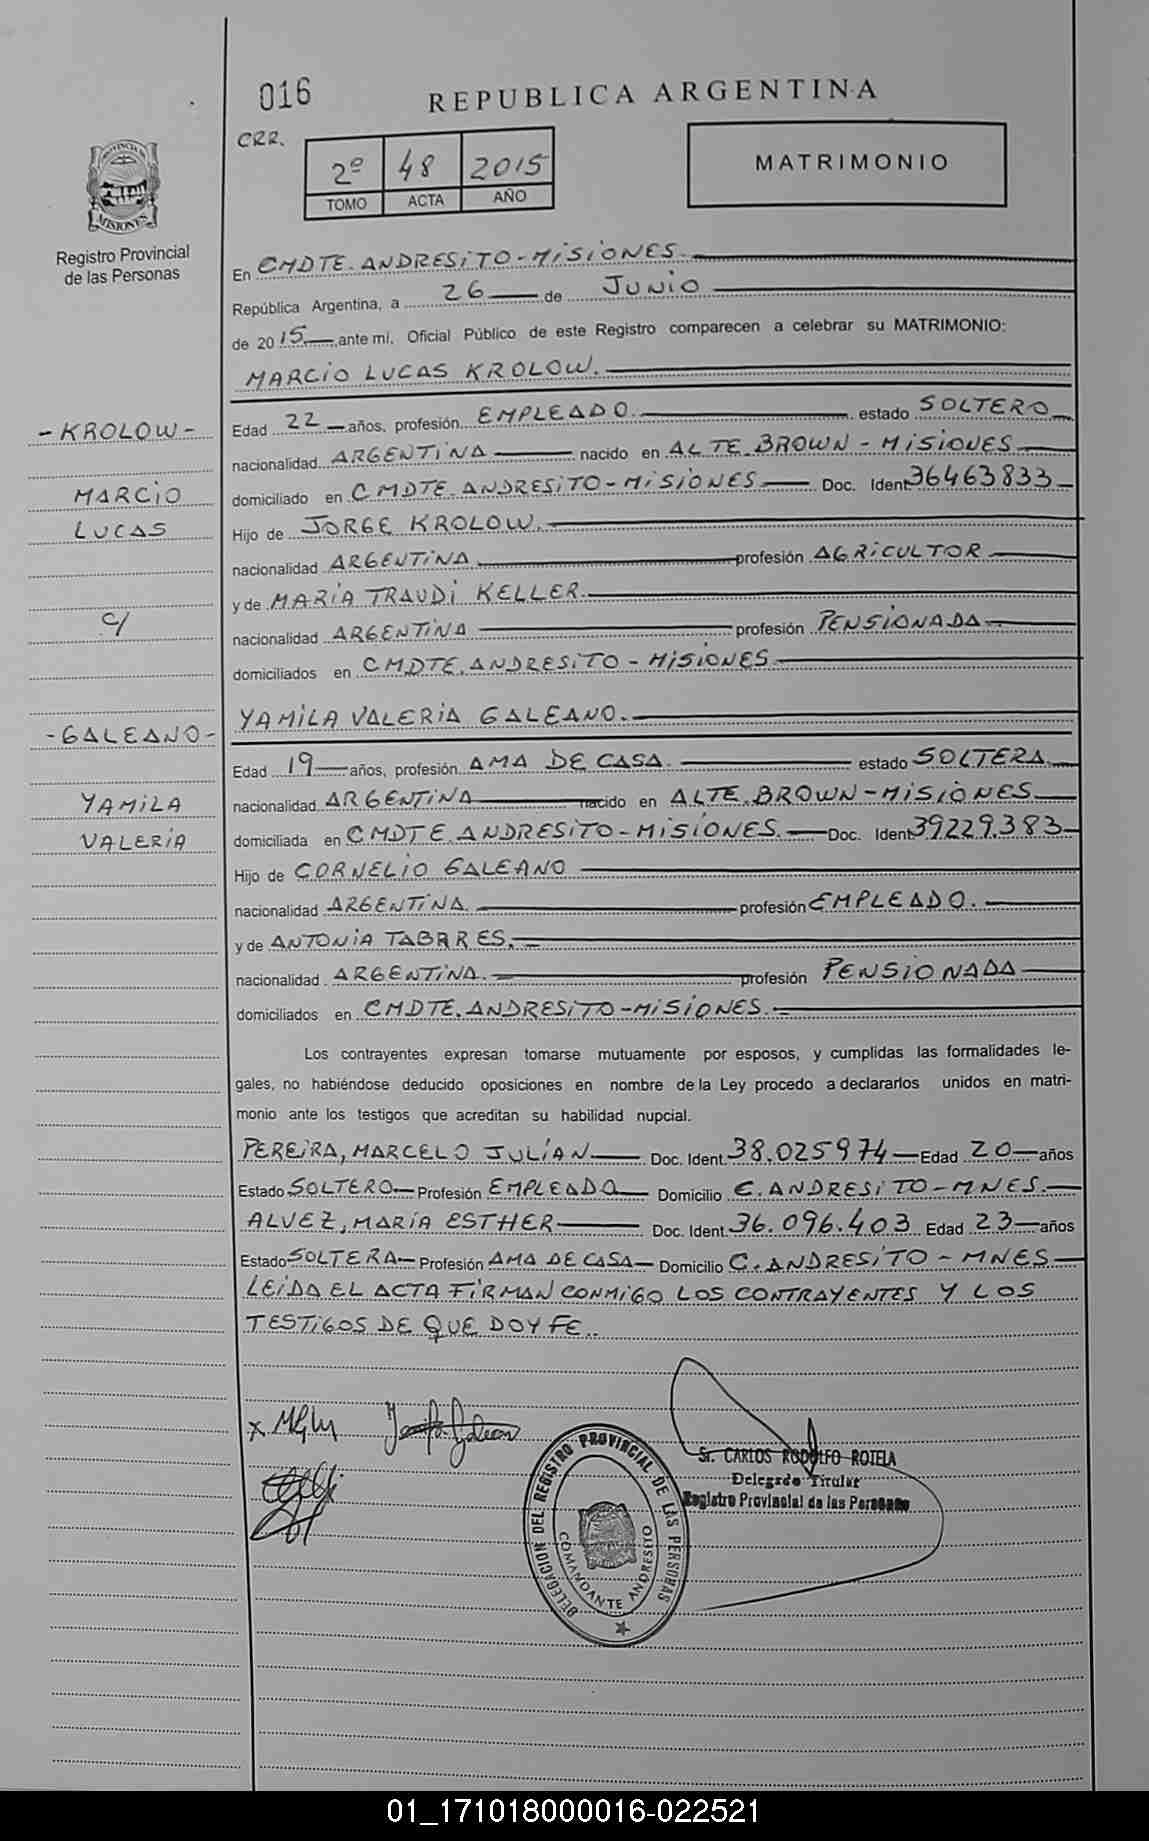 016
REPUBLICA ARGENTINA
CRR.
2º 48 2015
TOMO ACTA AÑO
MATRIMONIO
PROVINCIA DE
MISIONES
Registro Provincial
de las Personas
En CMDTE. ANDRESITO-MISIONES.
República Argentina, a 26 de JUNIO
de 2015 ,ante mí, Oficial Público de este Registro comparecen a celebrar su MATRIMONIO:
MARCIO LUCAS KROLOW.
-KROLOW-
Edad 22 años, profesión EMPLEADO. estado SOLTERO
nacionalidad ARGENTINA nacido en ALTE. BROWN - MISIONES
MARCIO
domiciliado en CMDTE. ANDRESITO-MISIONES Doc. Ident 36463833
LUCAS
Hijo de JORGE KROLOW.
nacionalidad ARGENTINA profesión AGRICULTOR
y de MARIA TRAUDI KELLER.
C/
nacionalidad ARGENTINA profesión PENSIONADA
domiciliados en CMDTE. ANDRESITO - MISIONES
YAMILA VALERIA GALEANO.
-GALEANO-
Edad 19 años, profesión AMA DE CASA. estado SOLTERA
nacionalidad ARGENTINA nacido en ALTE. BROWN-MISIONES
YAMILA
domiciliada en CMDTE. ANDRESITO-MISIONES. Doc. Ident 39229.383
VALERIA
Hijo de CORNELIO GALEANO
nacionalidad ARGENTINA. profesión EMPLEADO.
y de ANTONIA TABARES.
nacionalidad ARGENTINA. profesión PENSIONADA
domiciliados en CMDTE. ANDRESITO-MISIONES.
Los contrayentes expresan tomarse mutuamente por esposos, y cumplidas las formalidades le-
gales, no habiéndose deducido oposiciones en nombre de la Ley procedo a declararlos unidos en matri-
monio ante los testigos que acreditan su habilidad nupcial.
PEREIRA, MARCELO JULIÁN Doc. Ident. 38.025974 Edad 20 años
Estado SOLTERO Profesión EMPLEADO Domicilio C. ANDRESITO-MNES.
ALVEZ, MARÍA ESTHER Doc. Ident. 36.096.403 Edad 23 años
Estado SOLTERA Profesión AMA DE CASA Domicilio C. ANDRESITO - MNES
LEIDA EL ACTA FIRMAN CONMIGO LOS CONTRAYENTES Y LOS
TESTIGOS DE QUE DOY FE..
Sr. CARLOS RODOLFO ROTELA
Delegado Titular
Registro Provincial de las Personas
DELEGACION DEL REGISTRO PROVINCIAL DE LAS PERSONAS
COMANDANTE ANDRESITO
01_171018000016-022521